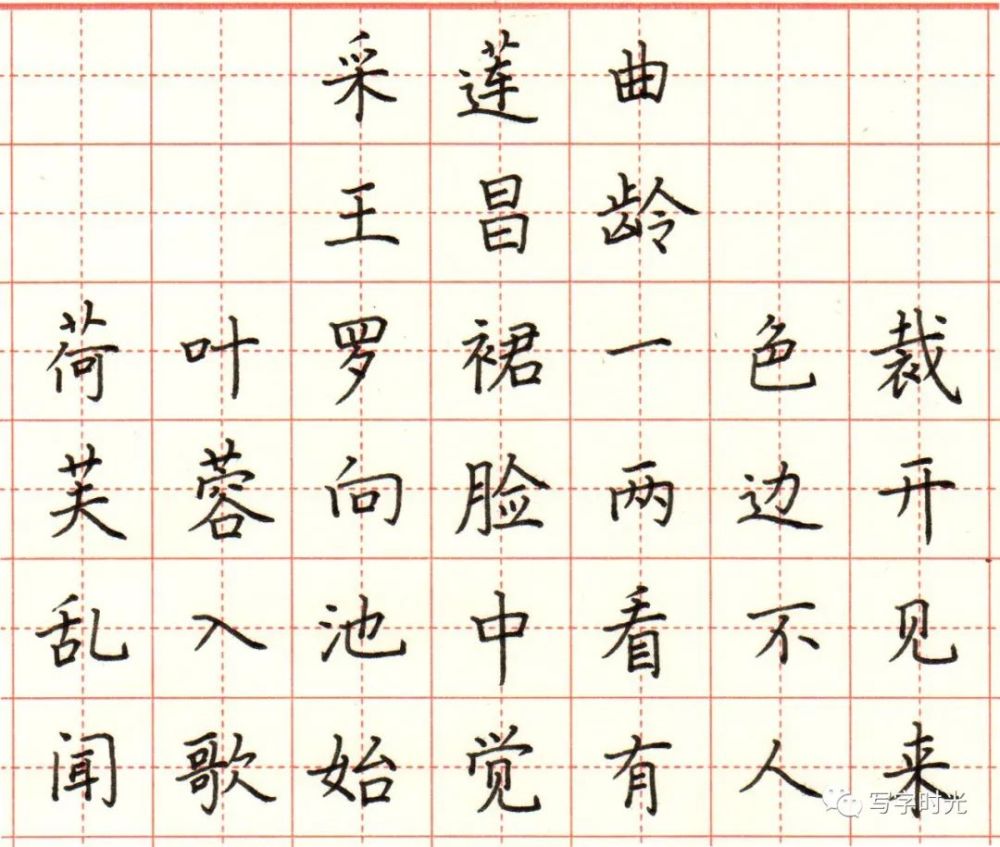 采莲曲
王昌龄
荷叶罗裙一色裁
芙蓉向脸两边开
乱入池中看不见
闻歌始觉有人来
写字时光